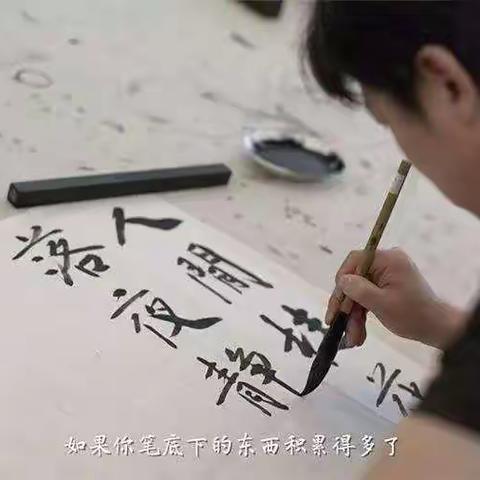 人閒桂花
落夜静
如果你笔底下的东西积累得多了